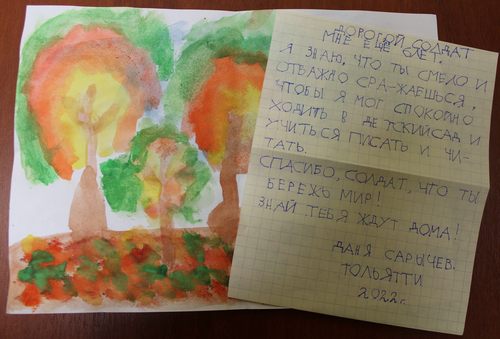 ДОРОГОЙ СОЛДАТ
МНЕ ЕЩЕ 6ЛЕТ.
Я ЗНАЮ, ЧТО ТЫ СМЕЛО И
ОТВАЖНО СРА-ЖАЕШЬСЯ,
ЧТОБЫ Я МОГ СПОКОЙНО
ХОДИТЬ В ДЕТСКИЙСАД И
УЧИТЬСЯ ПИСАТЬ И ЧИ-
ТАТЬ.
СПАСИБО, СОЛДАТ, ЧТО ТЫ
БЕРЕЖЬ МИР!
ЗНАЙ ТЕБЯ ЖДУТ ДОМА!
ДАНЯ САРЫЧЕВ.
ТОЛЬЯТТИ
2022г.